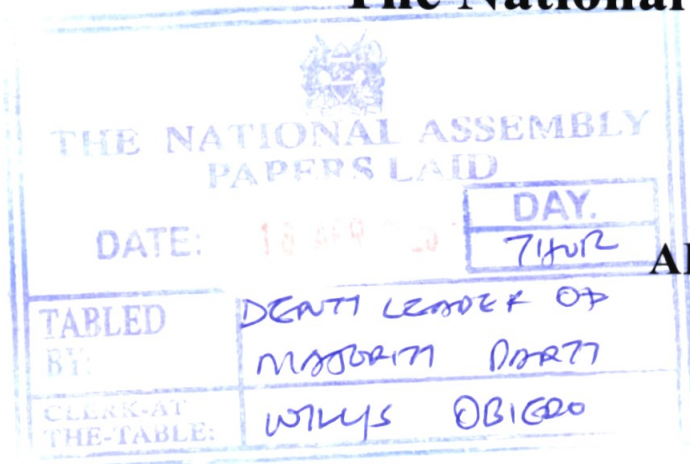 The National
THE NATIONAL ASSEMBLY
PAPERS LAID
DATE:
DAY.
THUR
TABLED BY:
DEPUTY LEADER OF
MAJORITY PARTY
CLERK-AT
THE-TABLE:
WILLYS OBIERO